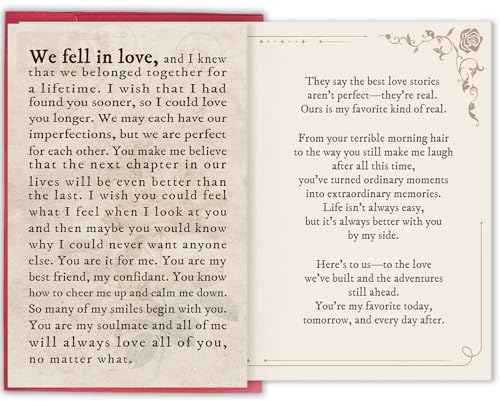 We fell in love, and I knew
that we belonged together for
a lifetime. I wish that I had
found you sooner, so I could love
you longer. We may each have our
imperfections, but we are perfect
for each other. You make me believe
that the next chapter in our
lives will be even better than
the last. I wish you could feel
what I feel when I look at you
and then maybe you would know
why I could never want anyone
else. You are it for me. You are my
best friend, my confidant. You know
how to cheer me up and calm me down.
So many of my smiles begin with you.
You are my soulmate and all of me
will always love all of you,
no matter what.
They say the best love stories
aren't perfect—they're real.
Ours is my favorite kind of real.
From your terrible morning hair
to the way you still make me laugh
after all this time,
you've turned ordinary moments
into extraordinary memories.
Life isn't always easy,
but it's always better with you
by my side.
Here's to us—to the love
we've built and the adventures
still ahead.
You're my favorite today,
tomorrow, and every day after.